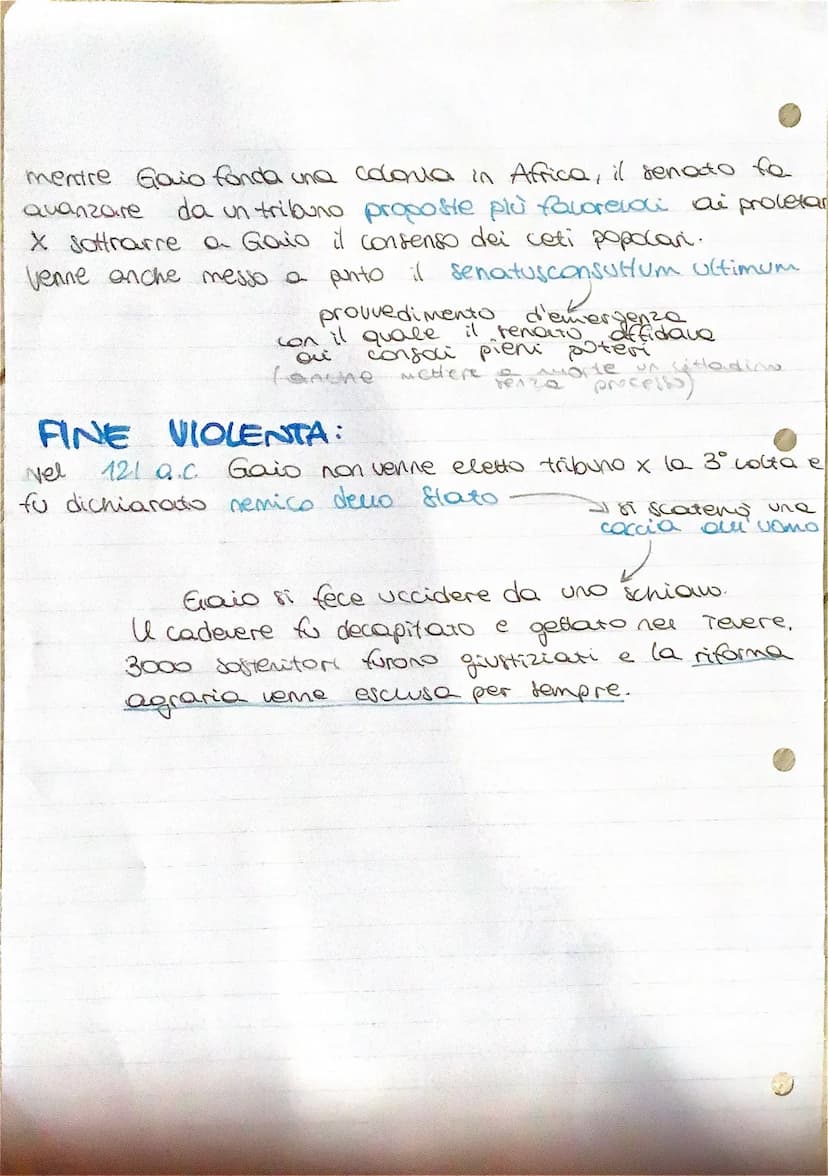 mentre Gaio fonda una colonia in Africa, il senato fa
avanzare da un tribuno proposte più favorevoli ai proletar
X sottrarre a Gaio il consenso dei ceti popolari.
Venne anche messo a punto il senatusconsultum ultimum
provvedimento d'emergenza
con il quale il senato affidava
ai consoli pieni poteri
(anche mettere a morte un cittadino
senza processo)
FINE VIOLENTA:
Nel 121 a.C. Gaio non venne eletto tribuno x la 3° volta e
fu dichiarato nemico dello stato → si scatenò una
caccia all'uomo
Gaio si fece uccidere da uno schiavo.
Il cadevere fu decapitato e gettato nel Tevere,
3000 sostenitori furono giustiziati e la riforma
agraria venne esclusa per sempre.